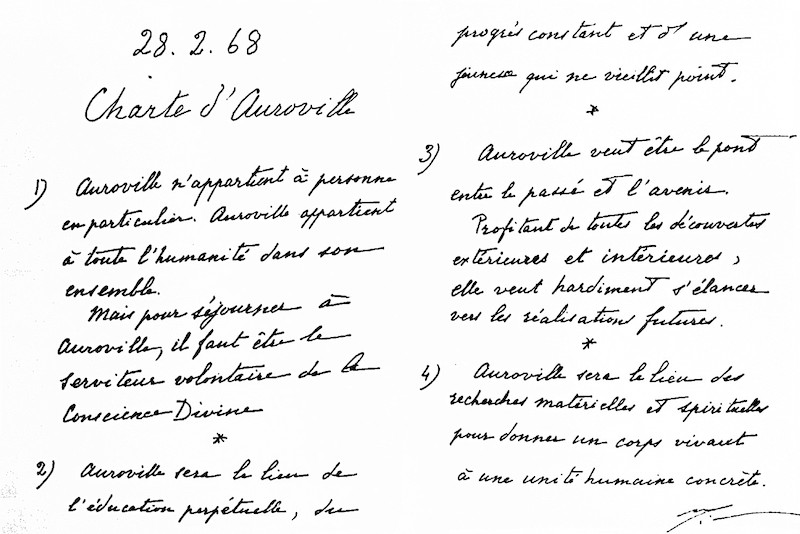 28.2.68
Charte d'Auroville
1) Auroville n'appartient à personne
en particulier. Auroville appartient
à toute l'humanité dans son
ensemble.
Mais pour séjourner à
Auroville, il faut être le
serviteur volontaire de la
Conscience Divine
*
2) Auroville sera le lieu de
l'éducation perpétuelle, du
progrès constant et d'une
jeunesse qui ne vieillit point.
*
3) Auroville veut être le pont
entre le passé et l'avenir.
Profitant de toutes les découvertes
extérieures et intérieures,
elle veut hardiment s'élancer
vers les réalisations futures.
*
4) Auroville sera le lieu des
recherches matérielles et spirituelles
pour donner un corps vivant
à une unité humaine concrète.